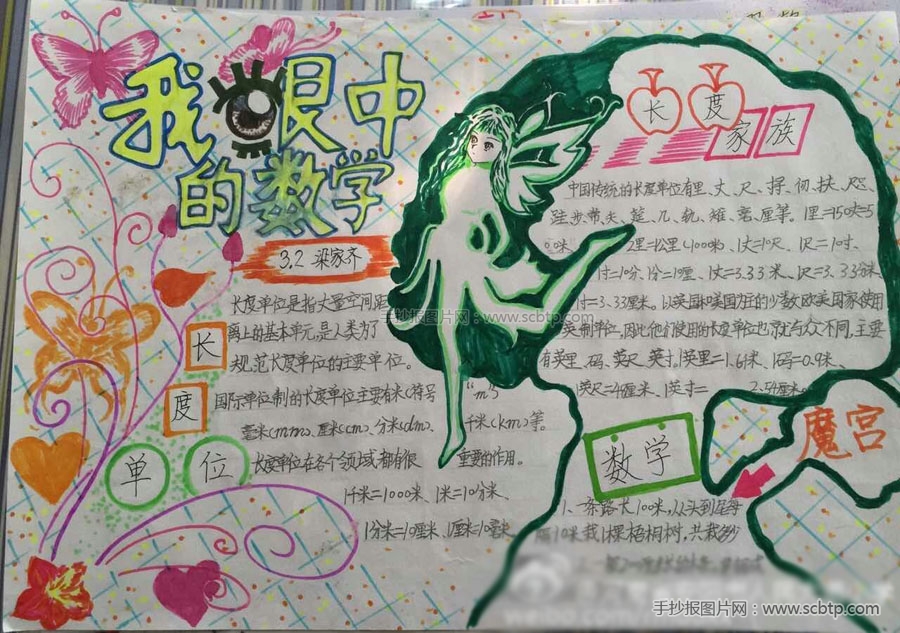 我眼中
的数学
3.2 梁家齐
长度单位
长度单位是指丈量空间距
离上的基本单元,是人类为了
规范长度单位的主要单位。
国际单位制的长度单位主要有米(符号“m”)
毫米(mm)、厘米(cm)、分米(dm)、千米(km)等。
长度单位在各个领域都有很重要的作用。
1千米=1000米、1米=10分米、
1分米=10厘米、1厘米=10毫米
长度
家族
中国传统的长度单位有里、丈、尺、
等。1里=150丈=5
米、2里=1公里(1000米)、1丈=10尺、1尺=10寸、
寸=10分、1分=10厘、1丈=3.33米、1尺=3.33分米
寸=3.33厘米。以英国和美国为主的少数欧美国家使用
英制单位,因此他们使用的长度单位也就与众不同,主要
有英里、码、英尺、英寸。1英里=1.6千米、1码=0.9米、
英尺= 厘米、1英寸=2.54厘米
数学
魔宫
1、一条路长100米,从头到尾每
隔10米栽1棵梧桐树,共栽多少
手抄报图片网:www.scbtp.com
手抄报图片网:www.scbtp.com